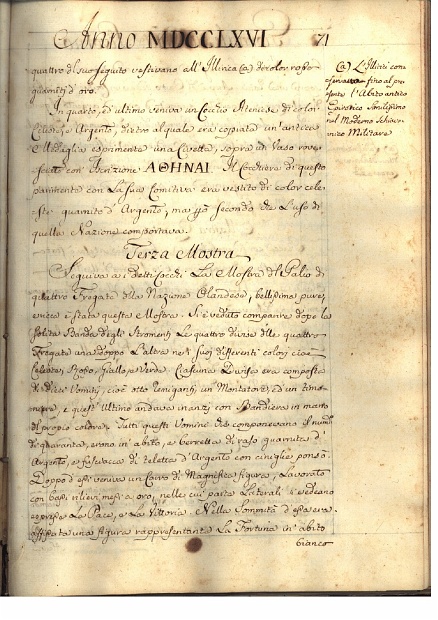 Anno MDCCLXVI
71
quattro del suo seguito vestivano all' Illirica (a) de color rosso
guarniti d'oro.
In quarto, ed ultimo veniva un Cocchio Ateniese di color
Celeste, e Argento, dietro al quale era copiata un' antica
Medaglia esprimente una Civetta, sopra un Vaso rove-
sciato con Iscrizione ΑΘΗΝΑΙ. Il Cocchiere di questo
parimente con la sua Comitiva era vestito di color cele-
ste guarnito d' Argento, ma secondo che l'uso di
quella Nazione comportava.
Terza Mostra
Seguiva ai detti Cocchi La Mostra del Palio di
quattro Fregate della Nazione Olandese, bellissima pure,
è stata questa Mostra. Si è veduto comparire dopo la
solita Banda degli Stromenti Le quattro divise delle quattro
Fregate una doppo L'altra ne' suoi differenti colori cioè
Celeste, Rosso, Giallo, e Verde. Ciascuna Divisa era composta
di dieci Uomini, cioè otto, un Montatore, ed un timo-
niere, e quest' Ultimo andava inanzi con Bandiera in mano
del proprio colore. Tutti questi Uomini che componevano il num.
di quaranta, erano in abito, e berretta di raso guarnita d'
Argento, e fusciacca di teletta d' Argento con ciniglie ponsò.
Doppo d' essi veniva un Carro di Magnifica figura, Lavorato
con bassi rilievi messi a oro, nelle cui parte Laterali si vedeano
espresse La Pace, e La Vittoria. Nella Sommità d' essa era
assisa una figura rappresentante La Fortuna in abito
bianco
(a) L' Illirici con-
servano fino al pre-
sente l' Abito antico
Epirotico Simil
nel Moderno Schiavo-
nico Militare